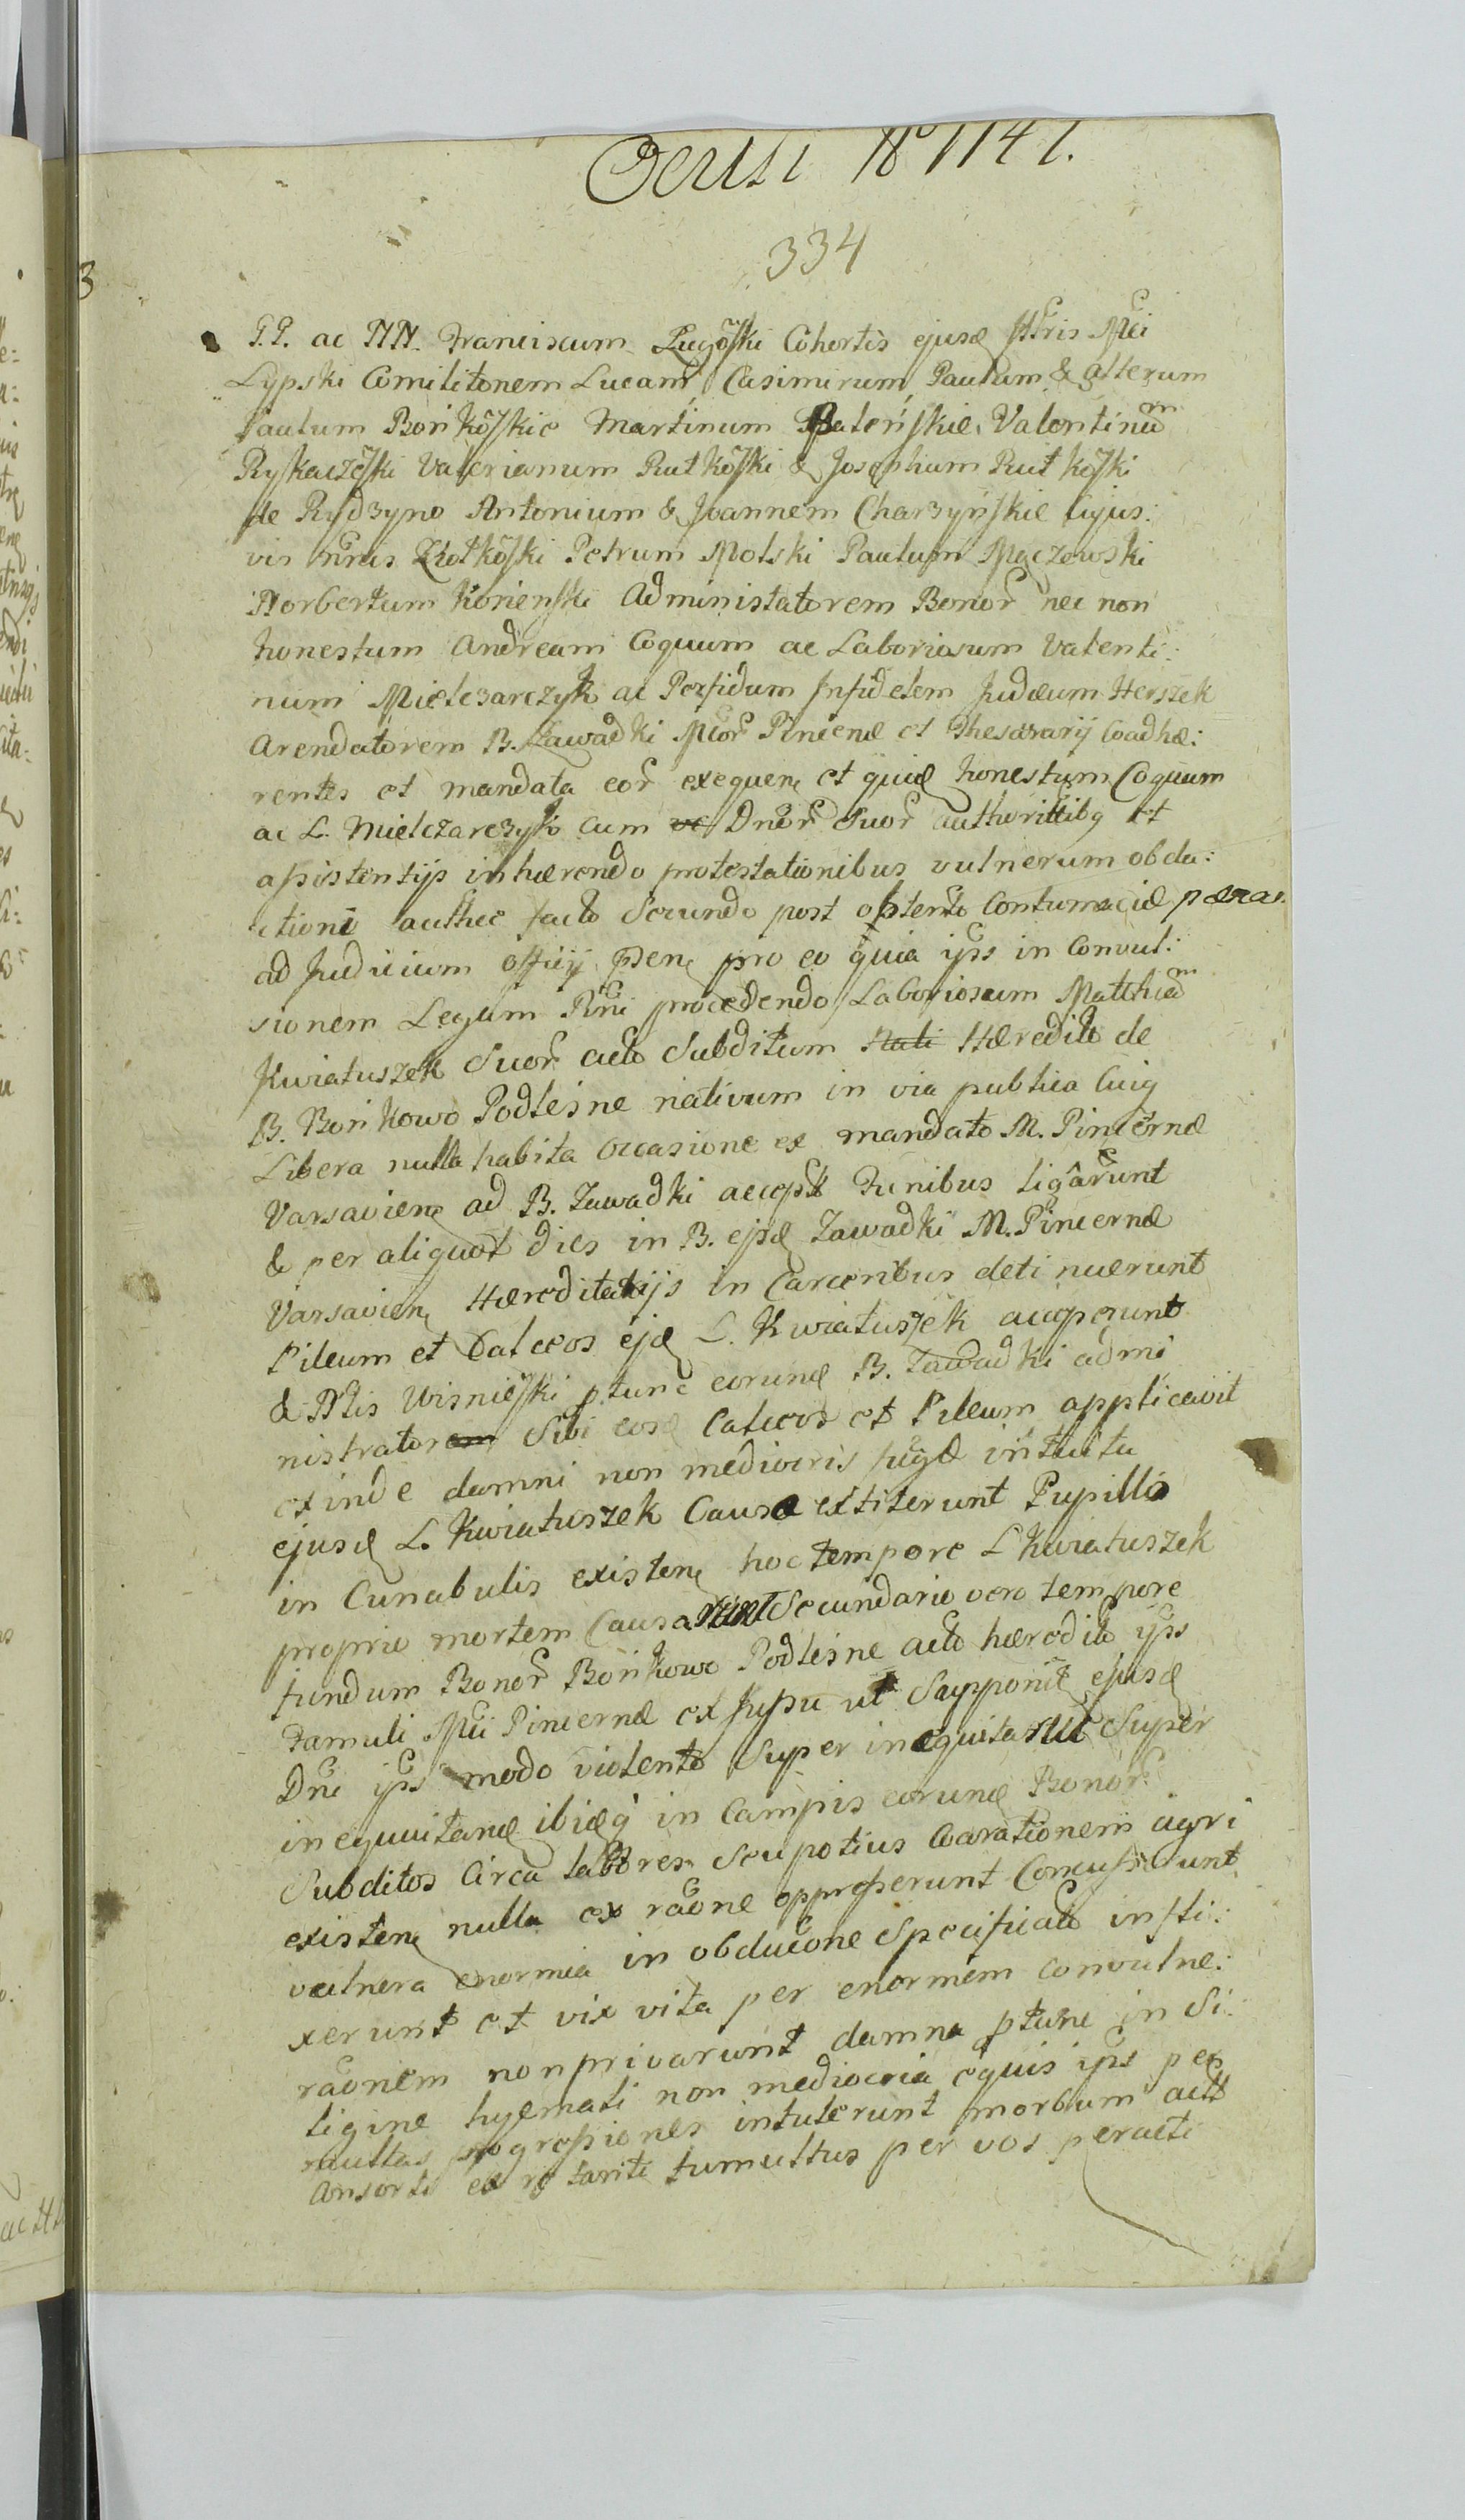 No 1147.
334
3
G.G. ac NN. Franciscum Cohortis ejusd Mci
Lypski Comilitonem Lucam, Casimirum, Paulum & alterum
Paulum Bońkoski Martinum Valentinum
Valerianum Rutkoski & Josephum Rutkoski
de Rydzyno Antonium & Joannem Charzyńskie cujus:
vis Złotkoski Petrum Molski Paulum Mączewski
Norbertum Administatorem Bonor nec non
honestum Andream Coquum ac Laboriosum Valenti:
num Mielczarczyk ac Perfidum Infidelem Judæum Herszek
Arendatorem B. Zawadki Mcor Pincernæ et Thesaurarij Coadhæ:
rentes et mandata eor exequen et quid honestum Coquum
ac L. Mielczarczyk cum Dnor Suor authoritibq et
assistentijs inhærendo protestationibus vulnerum obdu:
ctioni facto Secundo post Contumaciæ
ad Judicium offij psen pro eo quia ips in Convul:
sionem Legum Rni procedendo Laboriosum Mathiam
Kwiatuszek Suor acto Subditum Hæredito de
B. Bońkowo Podleśne nativum in via publica Cuiq
Libera nulla habita occasione ex mandato M. Pincernæ
Varsavien ad B. Zawadki Funibus ligârunt
& per aliquot dies in B. ejsd Zawadki M. Pincernæ
Varsavien Hæreditarijs in Carceribus detinuerunt
Pileum et Calceos ejd L. Kwiatuszek acceperunt
& Nlis Wisnieski ptunc eorund B. Zawadki admi
nistrator Sibi eosd Calceos et Pileum applicavit
exinde damni non mediocris fugæ intuitu
ejusd L. Kwiatuszek Causa extiterunt Pupillo
in Cunabulis existen hoc tempore L Kwiatuszek
proprio mortem Causarunt Secundario vero tempore
fundum Bonor Bońkowo Podleśne acto hæredito ips
Famuli Mci Pincernæ ex jussu ut Supponit ejusd
Dni ips modo violento Super inequitarut Super
inequitand ibidq in Campis eorund Bonor
Subditos Circa labores Seu potius Coarationem agri
existen nulla ex raone oppresserunt Concusserunt
vulnera enormia in obducone Specificato infli:
xerunt et vix vita per enormem convulne:
raonem non privarunt damna ptunc in Si:
ligine hyemali non mediocria equis ips per
multas progressiones intulerunt morbum acto
Consorti tumultus per vos peracti